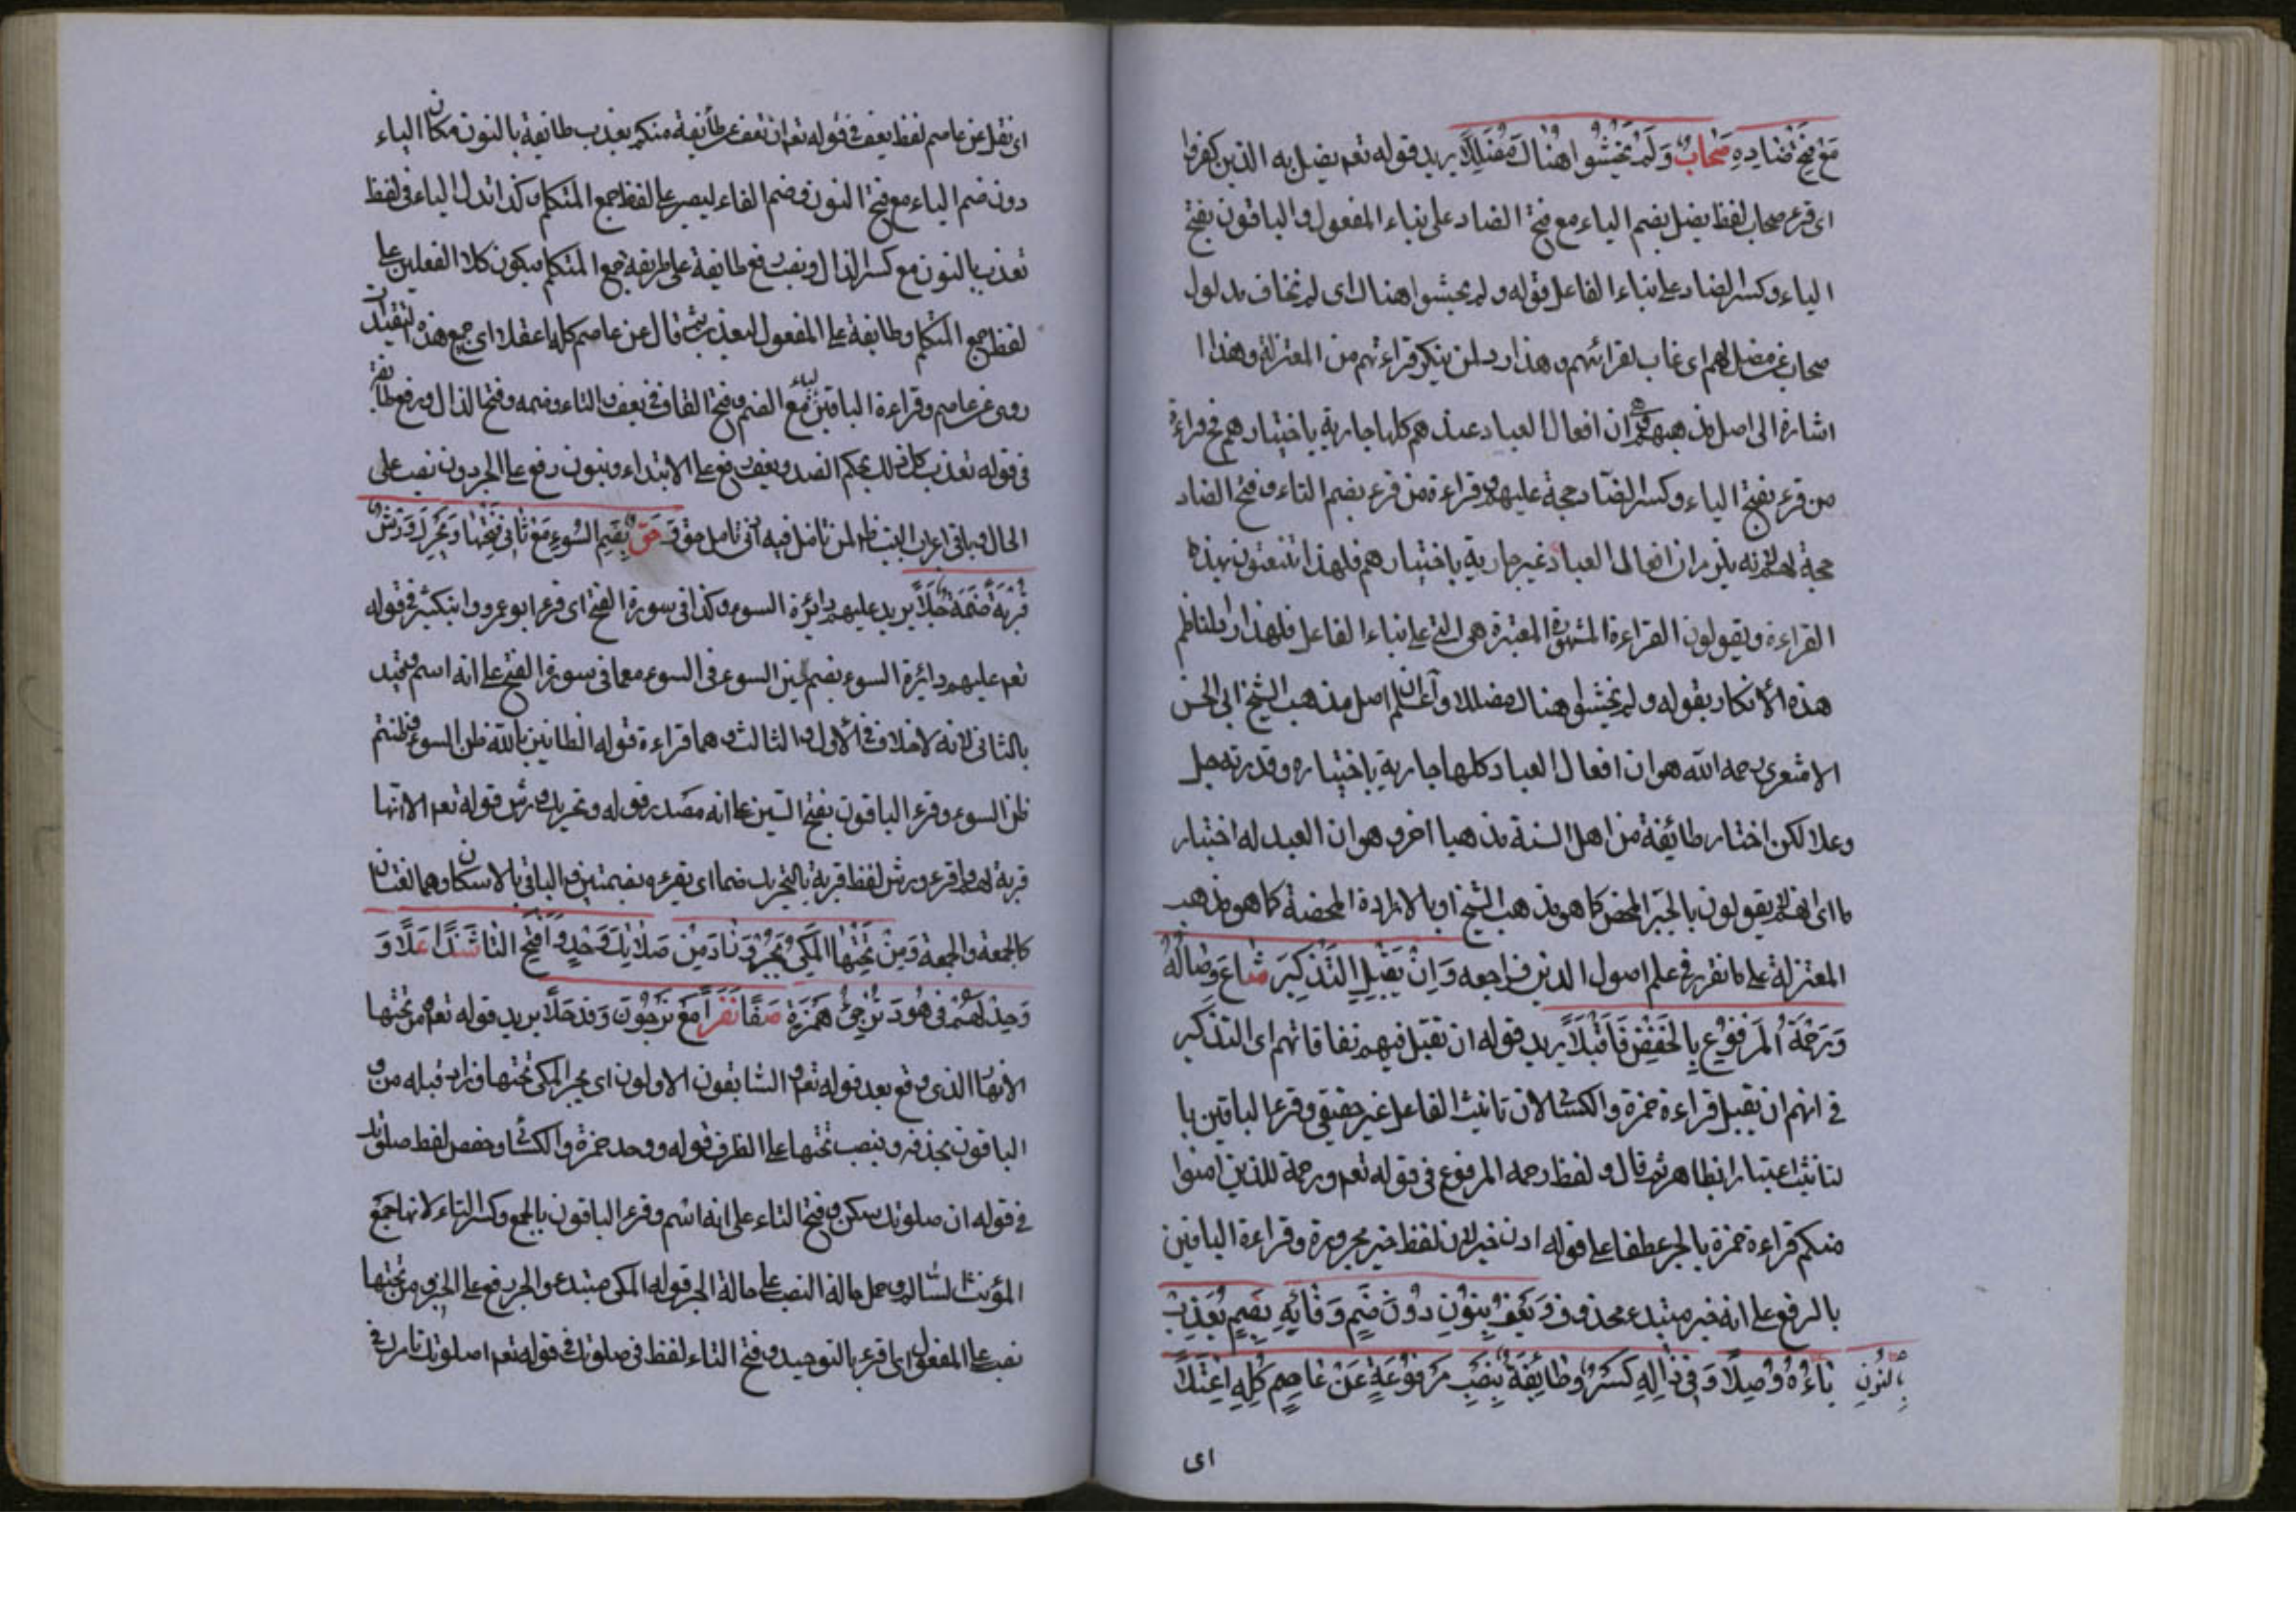 مَعَ فَتْحِ ضَادِهِ صِحَابٌ وَلَمْ يَخْشَوْا هُنَاكَ مُضَلِّلًا يريد قوله تعم يضل به الذين كفروا
اى قرء صحاب لفظ يضل بضم الياء مع فتح الضاد على بناء المفعول والباقون بفتح
الياء وكسر الضاد على بناء الفاعل قوله ولم يخشوا هناك اى لم تخاف مدلول
صحاب عن مضل لهم اى غاب لقرائهم وهذا رد لمن ينكر قراءتهم من المعتزلة وهذا
اشارة الى اصل مذهبهم ان افعال العباد عندهم كلها جارية باختيارهم فح قراءة
من قرء بفتح الياء وكسر الضاد حجة عليهم وقراءة من قرء بضم التاء وفتح الضاد
حجة لهم لانه يلزم ان افعال العباد غير جارية باختيارهم فلهذا بهذه
القراءة ويقولون القراءة المشهورة المعتبرة هى التى على بناء الفاعل فلهذا رد الناظم
هذه الأنكار بقوله ولم يخشوا هناك مضللا واعلم ان اصل مذهب الشيخ ابى الحسن
الاشعرى رحمه الله هو ان افعال العباد كلها جارية باختياره وقدرته جل
وعلا لكن اختار طائفة من اهل السنة مذهبا اخر وهو ان العبد له اختيار
ما اى انهم لم يقولون بالجبر المحض كما هو مذهب الشيخ او بالارادة المحضة كما هو مذهب
المعتزلة على ما تقرر فى علم اصول الدين فراجعه وَاِنْ يُقْبَلِ التَّذْكِيرَ شَاعَ وِصَالُهُ
وَرَحْمَةُ الْمَرْفُوعُ بِالْخَفْضِ فَاقْبَلَا يريد قوله ان تقبل فيهم نفاقاتهم اى التذكير
فى انهم ان يقبل قراءة حمزة والكسائى لان تانيث الفاعل غير حقيقى وقرء الباقين با
لتانيث اعتبارا بظاهره ثم قال ولفظ رحمه المرفوع فى قوله تعم ورحمة للذين امنوا
منكم قراءة حمزة بالجر عطفا على قوله اذن خير لان لفظ خير مجرورة وقراءة الباقين
بالرفع على انه خبر مبتدء محذوف وَيُعْفَ بِنُونٍ دُونَ ضَمٍّ وَفَائِهِ بِضَمٍّ يُعَذَّبْ
تَاءُهُ وُصِلَا وَفِى ذَالِهِ كَسْرٌ وَطَائِفَةٌ بِنَصْبِ مَرْفُوعَةٍ عَنْ عَاصِمٍ كُلِّهِ اعْتَلَا
بِالنُّونِ
اى
اى نقل عن عاصم لفظ يعف فى قوله تعم ان نعف عن طائفة منكم نعذب طائفة بالنون مكان الياء
دون ضم الياء مع فتح النون وضم الفاء ليصير على لفظ جمع المتكلم وكذا تدل الياء فى لفظ
تعذب بالنون مع كسر الذال ونصب رفع طايفة على طريقة جمع المتكلم فيكون كلا الفعلين على
لفظ جمع المتكلم وطايفة على المفعول لنعذب ثم قال عن عاصم كله اعتلا اى جميع هذه التقييدات
روى عن عاصم وقراءة الباقين بالياء مع الضم وفتح القاف فى يعف والتاء وضمه وفتح الذال ورفع طائفة
فى قوله تعذب كل ذلك بحكم الضد ويعف رفع على الابتداء وبنون رفع على الخبر دون نصب على
الحال وباقى اعراب البيت ظ لمن تامل فيه انى تامل حَقٌّ بِضَمِّ السُّوءِ مَعْ ثَانِى فَتْحِهَا وَتَحْرِيكُ وَرْشٍ
قُرْبَةٌ ضَمَّةُ جَلَا يريد عليهم دائرة السوء وكذا فى سورة الفتح اى قرء ابو عمرو وابن كثير فى قوله
تعم عليهم دائرة السوء بضم سين السوء فى السوء معا فى سورة الفتح على انه اسم وتقييد
بالثانى لانه لا خلاف فى الاول والثالث وهما قراءة قوله الظانين بالله ظن السوء وظننتم
ظن السوء وقرء الباقون بفتح السين على انه مصدر قوله وتحريك ورش قوله تعم الا انها
قربة لهم اى قرء ورش لفظ قربة بالتحريك ضما اى يقرء بضمتين والباقى بالاسكان وهما لغتان
كالجمعة والجمعة وَمِنْ تَحْتِهَا الْمَكِّى يَجُرُّ وَزَادَ مِنْ صَلَاتَكَ وَحِّدْ وَافْتَحِ التَّا شَذًا عَلَا وَ
وَحِّدْ لَهُمْ فِى هُودَ تُرْجِئُ هَمْزُهُ صَفَا نَفَرًا مَعْ مُرْجَؤُنَ وَقَدْ حَلَا يريد قوله تعم من تحتها
الأنهار الذى وقع بعد قوله تعم والسابقون الاولون اى يجر المكى تحتها وزاد قبله من و
الباقون بحذفه وبنصب تحتها على الظرف قوله ووحد حمزة والكسائى وحفص لفظ صلوتك
فى قوله ان صلوتك سكن وفتح التاء على انه اسم وقرء الباقون بالجمع وكسر التاء لانها جمع
المؤنث السالم وحمل حالة النصب على حالة الجر قوله المكى مبتدء والجر رفع على الخبر ومن تحتها
نصب على المفعول اى قرء بالتوحيد وفتح التاء لفظ فى صلوتك فى قوله تعم اصلوتك تامرك فى